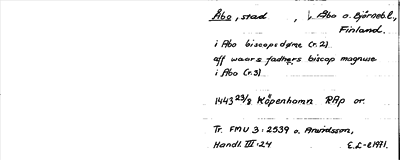 Åbo, stad , Åbo o. Björneb.l.,
Finland.
i Abo biscopsdøme (r.2)
aff waars fadhers biscop magnuse
i Åbo (r.3)
1443 23/8 Köpenhamn RAp or.
Tr. FMU 3:2539 o. Arwidsson,
Handl. III:24 E.L-e 1971.